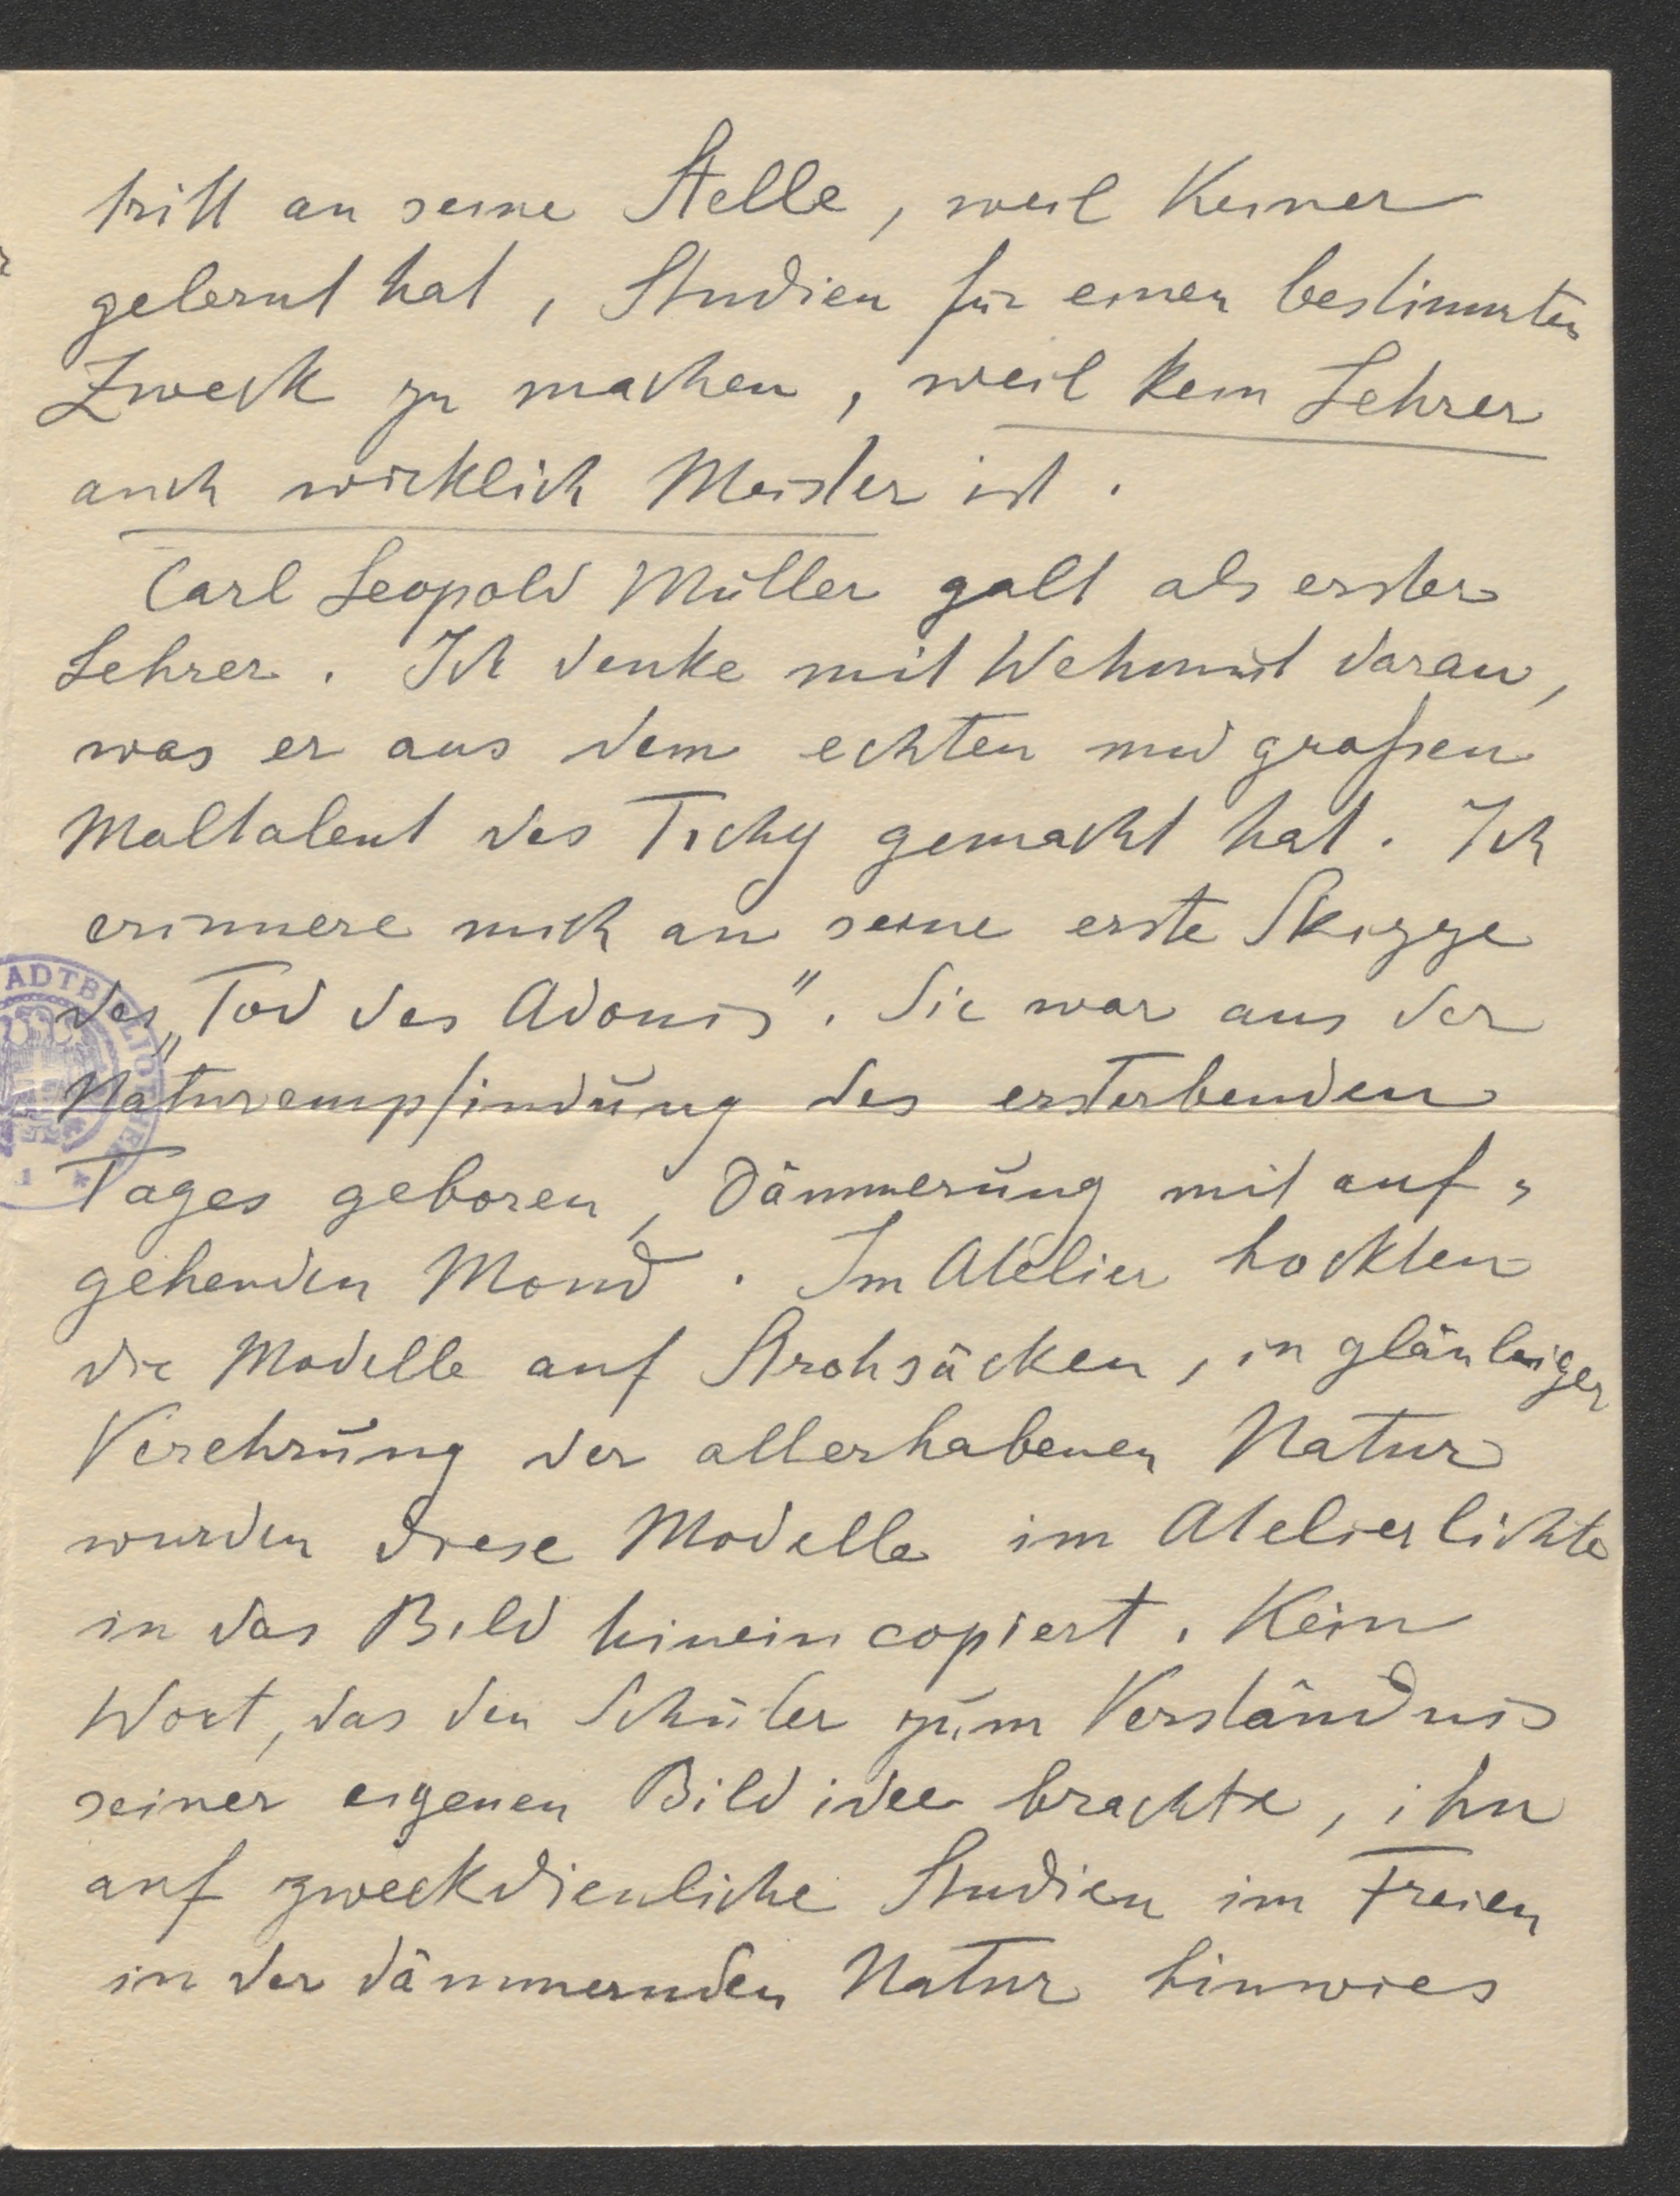 tritt an seine Stelle, weil Keiner
gelernt hat, Studien für einen bestimmten
Zweck zu machen, weil kein Lehrer
auch wirklich Meister ist.
Carl Leopold Müller galt als erster
Lehrer. Ich denke mit Wehmut daran,
was er aus dem echten und großen
Maltalent des Tichy gemacht hat. Ich
erinnere mich an seine erste Skizze
des „Tod des Adonis". Sie war aus der
Naturempfindung des ersterbenden
Tages geboren, Dämmerung mit auf-
gehenden Mond. Im Atelier hockten
die Modelle auf Strohsäcken, in gläubiger
Verehrung der allerhabenen Natur
wurden diese Modelle im Atelierlichte
in das Bild hineincopiert. Kein
Wort, das den Schüler zum Verständnis
seiner eigenen Bildidee brachte, ihn
auf zweckdienliche Studien im Freien
in der dämmernden Natur hinwies